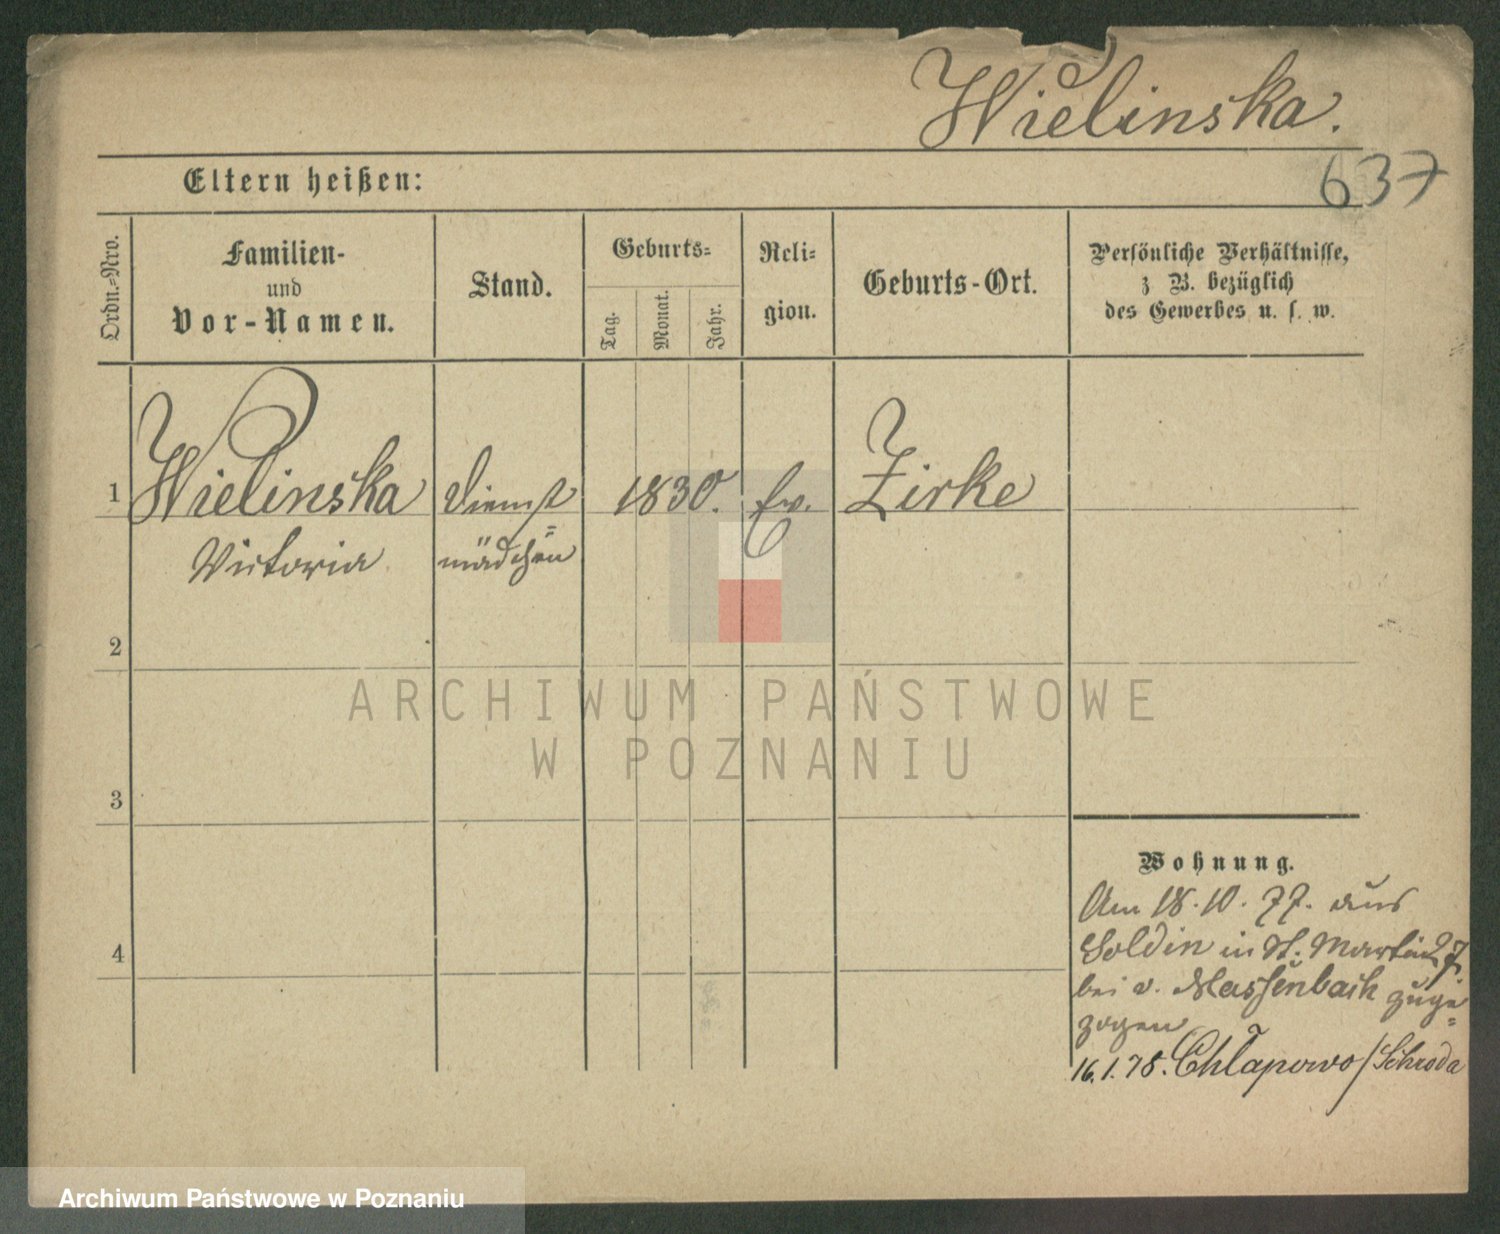 Wielinska.
637
Eltern heißen:
Ordn.=Nro.
Familien-
und
Vor-Namen.
Stand.
Geburts=
Tag.
Monat.
Jahr.
Reli=
gion.
Geburts-Ort.
Persönliche Verhältnisse,
z B. bezüglich
des Gewerbes u. s. w.
1 Wielinska Dienst 1830. Ev. Zirke
Victoria =mädchen
2
3
4
Wohnung.
Am 18.10.77. aus
Soldin in St. Martin 27.
bei v. Massenbach zuge=
zogen
16.1.78. Chlapowo/Schroda
ARCHIWUM PAŃSTWOWE
W POZNANIU
Archiwum Państwowe w Poznaniu